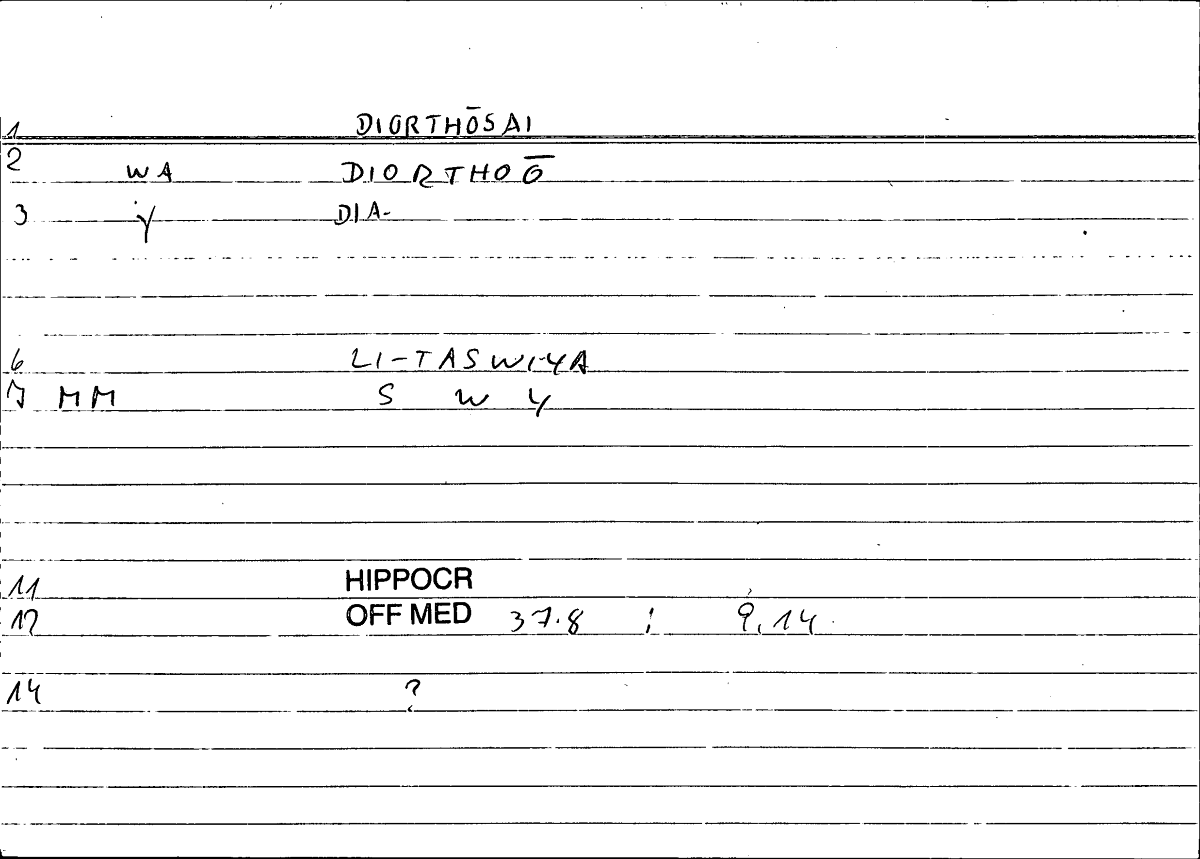 1 DIORTHŌSAI
2 WA DIORTHOŌ
3 γ DIA-
6 LI-TASWIYA
7 MM S W Y
11 HIPPOCR
12 OFF MED 37.8 ; 9,14
14 ?